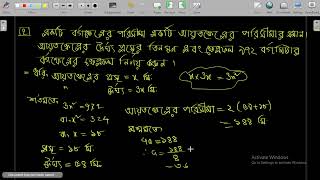 ২। একটি বর্গক্ষেত্রের পরিসীমা একটি আয়তক্ষেত্রের পরিসীমার সমান।
আয়তক্ষেত্রের দৈর্ঘ্য প্রস্থের তিনগুণ এবং ক্ষেত্রফল ৯৭২ বর্গমিটার
বর্গক্ষেত্রের ক্ষেত্রফল নির্ণয় করুন।
ধরি, আয়তক্ষেত্রের প্রস্থ = x মি.
দৈর্ঘ্য = 3x মি.
x × 3x = 3x²
শর্তমতে
3x² = 972
বা x² = 324
বা x = ১৮
প্রস্থ = ১৮ মি.
দৈর্ঘ্য = ৫৪ মি.
আয়তক্ষেত্রের পরিসীমা = 2 (৫৪+১৮)
= ১৪৪ মি.
প্রশ্নমতে
4a = ১৪৪
∴ a = ১৪৪
4
= ৩৬
Activate Windows
Go to Settings to activate Windows.